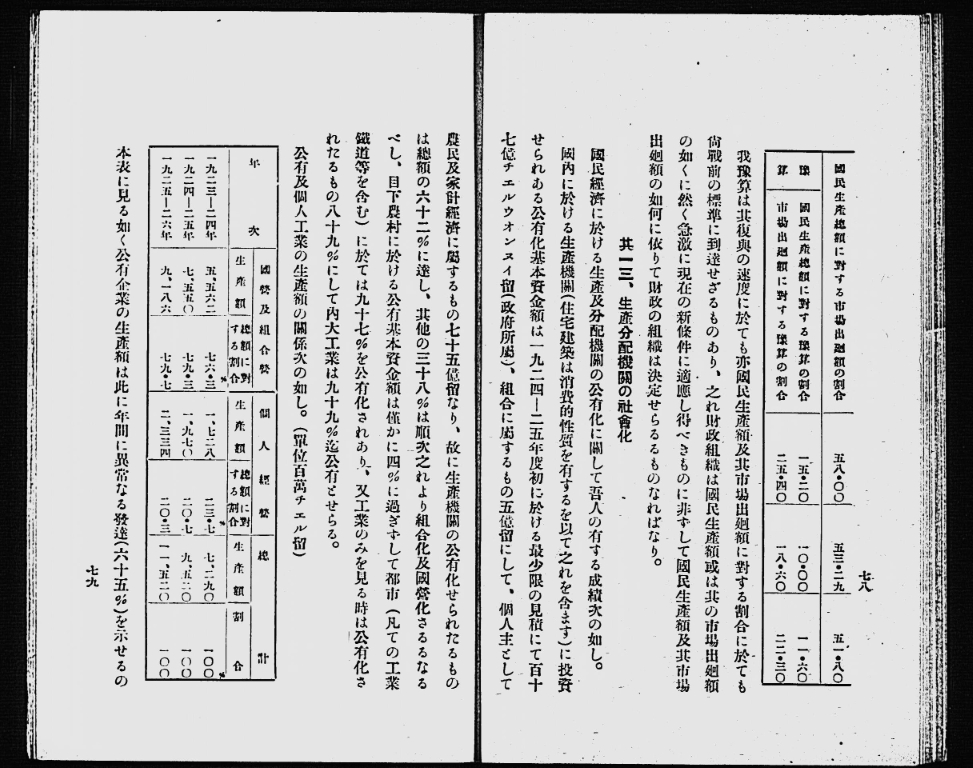 七八
國民生產總額に對する市場出廻額の割合 五八・〇〇 五三・二九 五一・八〇
豫算
國民生產總額に對する豫算の割合 一五・二〇 一〇・〇〇 一一・六〇
市場出廻額に對する豫算の割合 二五・四〇 一八・六〇 二二・三〇
我豫算は其復興の速度に於ても亦國民生產額及其市場出廻額に對する割合に於ても
尙戰前の標準に到達せざるものあり、之れ財政組織は國民生產額或は其の市場出廻額
の如くに然く急激に現在の新條件に適應し得べきものに非ずして國民生產額及其市場
出廻額の如何に依りて財政の組織は決定せらるるものなればなり。
其一三、生產分配機關の社會化
國民經濟に於ける生產及分配機關の公有化に關して吾人の有する成績次の如し。
國內に於ける生產機關(住宅建築は消費的性質を有するを以て之れを含まず)に投資
せられある公有化基本資金額は一九二四—二五年度初に於ける最少限の見積にて百十
七億チエルウオンヌイ留(政府所屬)、組合に屬するもの五億留にして、個人主として
農民及家計經濟に屬するもの七十五億留なり、故に生產機關の公有化せられたるもの
は總額の六十二%に達し、其他の三十八%は順次之れより組合化及國營化さるるなる
べし、目下農村に於ける公有基本資金額は僅かに四%に過ぎずして都市(凡ての工業
鐵道等を含む)に於ては九十七%を公有化されあり、又工業のみを見る時は公有化さ
れたるもの八十九%にして內大工業は九十九%迄公有とせらる。
公有及個人工業の生產額の關係次の如し。(單位百萬チエル留)
年次
國營及組合營 生產額 總額に對する割合
個人經營 生產額 總額に對する割合
總計 生產額 割合
一九二三—二四年 五、五六二 七六・三% 一、七二八 二三・七% 七、二九〇 一〇〇%
一九二四—二五年 七、五五〇 七九・三 一、九七〇 二〇・七 九、五二〇 一〇〇
一九二五—二六年 九、一八六 七九・七 二、三三四 二〇・三 一一、五二〇 一〇〇
本表に見る如く公有企業の生產額は此に年間に異常なる發達(六十五%)を示せるの
七九